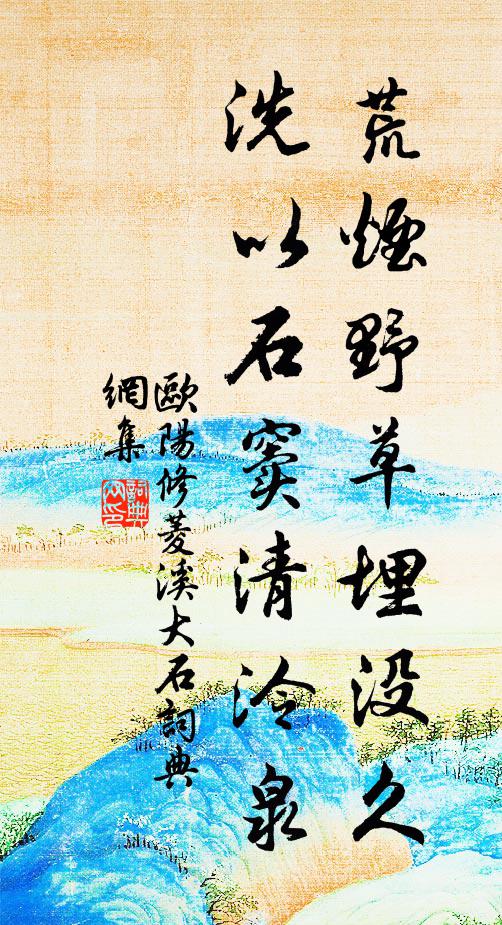 荒煙野草埋没久
洗以石竇清泠泉
歐陽修菱溪大石詞典
網集
詞典